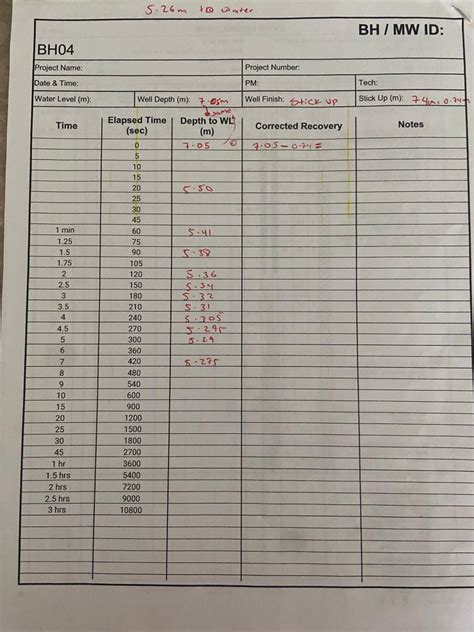 5.26m to water
BH / MW ID:
BH04
Project Name: Project Number:
Date & Time: PM: Tech:
Water Level (m): Well Depth (m): 7.05m Well Finish: Stick Up Stick Up (m): 74cm=0.74m
Time Elapsed Time (sec) Depth to WL (m) Corrected Recovery Notes
0 7.05 7.05-0.74=
5
10
15
20 5.50
25
30
45
1 min 60 5.41
1.25 75
1.5 90 5.38
1.75 105
2 120 5.36
2.5 150 5.34
3 180 5.32
3.5 210 5.31
4 240 5.305
4.5 270 5.295
5 300 5.29
6 360
7 420 5.275
8 480
9 540
10 600
15 900
20 1200
25 1500
30 1800
45 2700
1 hr 3600
1.5 hrs 5400
2 hrs 7200
2.5 hrs 9000
3 hrs 10800